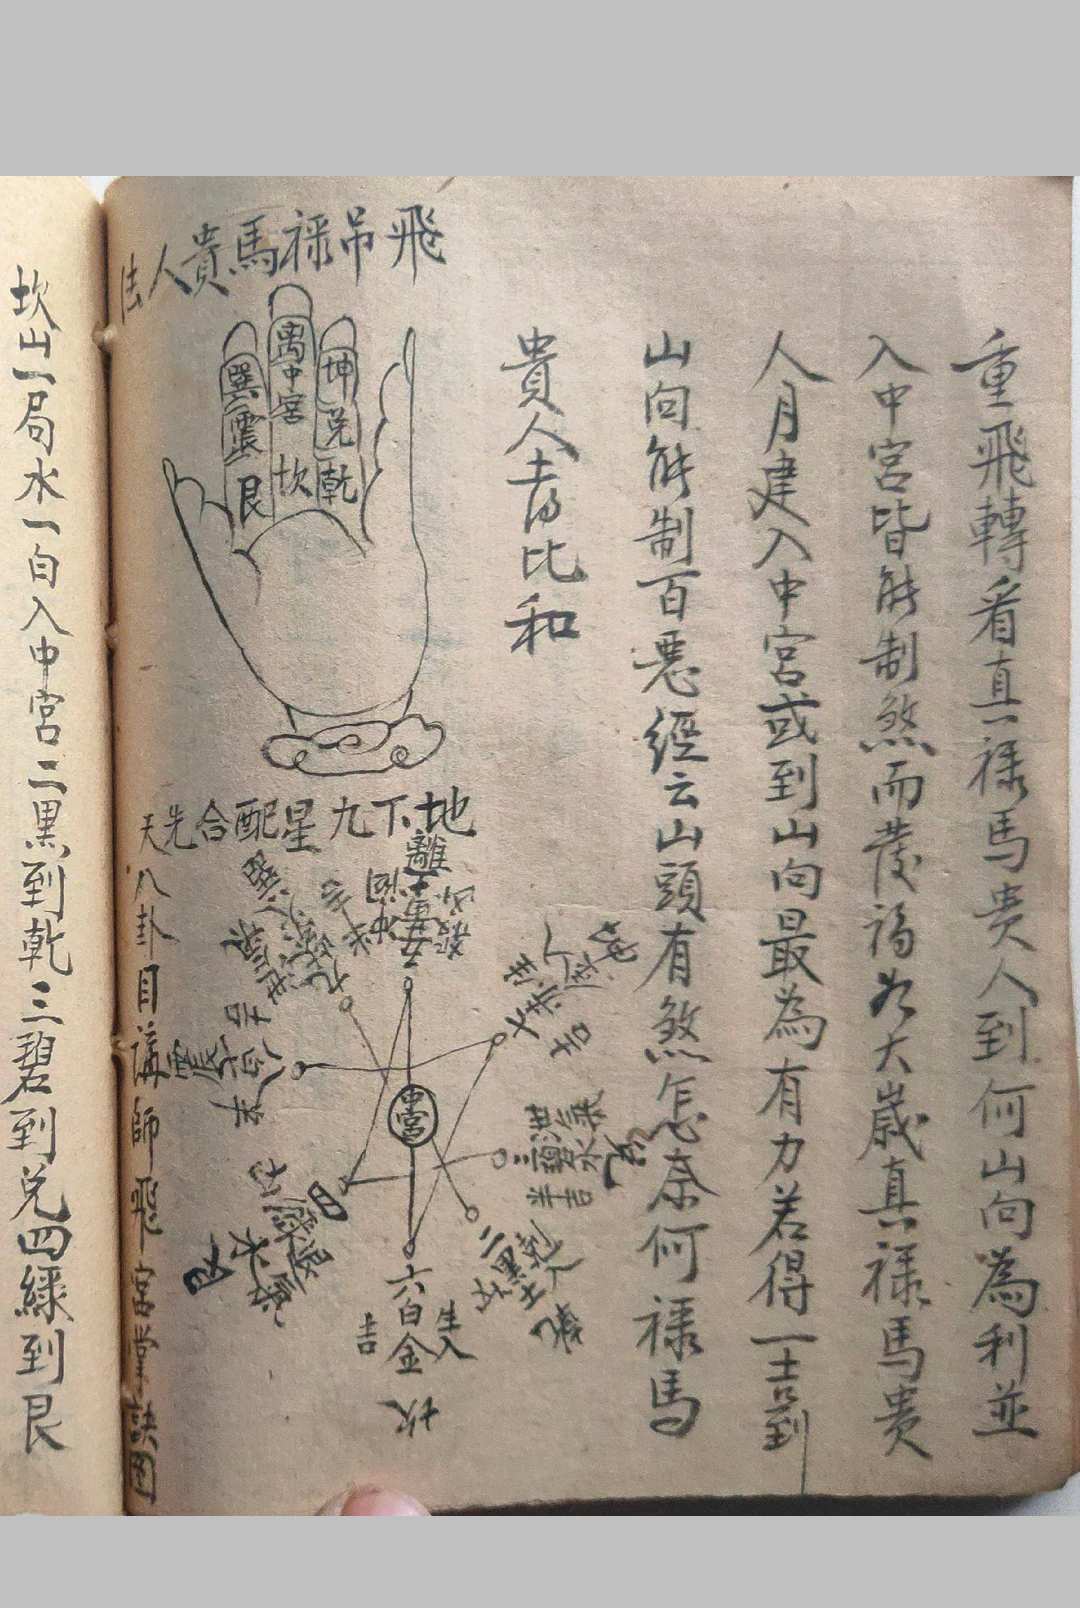 重飛轉看真祿馬貴人到何山向為利並
入中宮皆能制煞而發福如大歲真祿馬貴
人月建入中宮或到山向最為有力若得一吉到
山向能制百惡經云山頭有煞怎奈何祿馬
貴人吉比和
飛吊祿馬貴人法
離中宮坎
坤兌乾
巽震艮
地下九星配合先天八卦目講師飛宮掌訣圖
中宮
離
五黃土
七赤金
吉
三碧木
洩氣
半吉
二黑土
六白金
生入
吉
坎
八白土
震
吉
坎山一局水一白入中宮二黑到乾三碧到兌四綠到艮